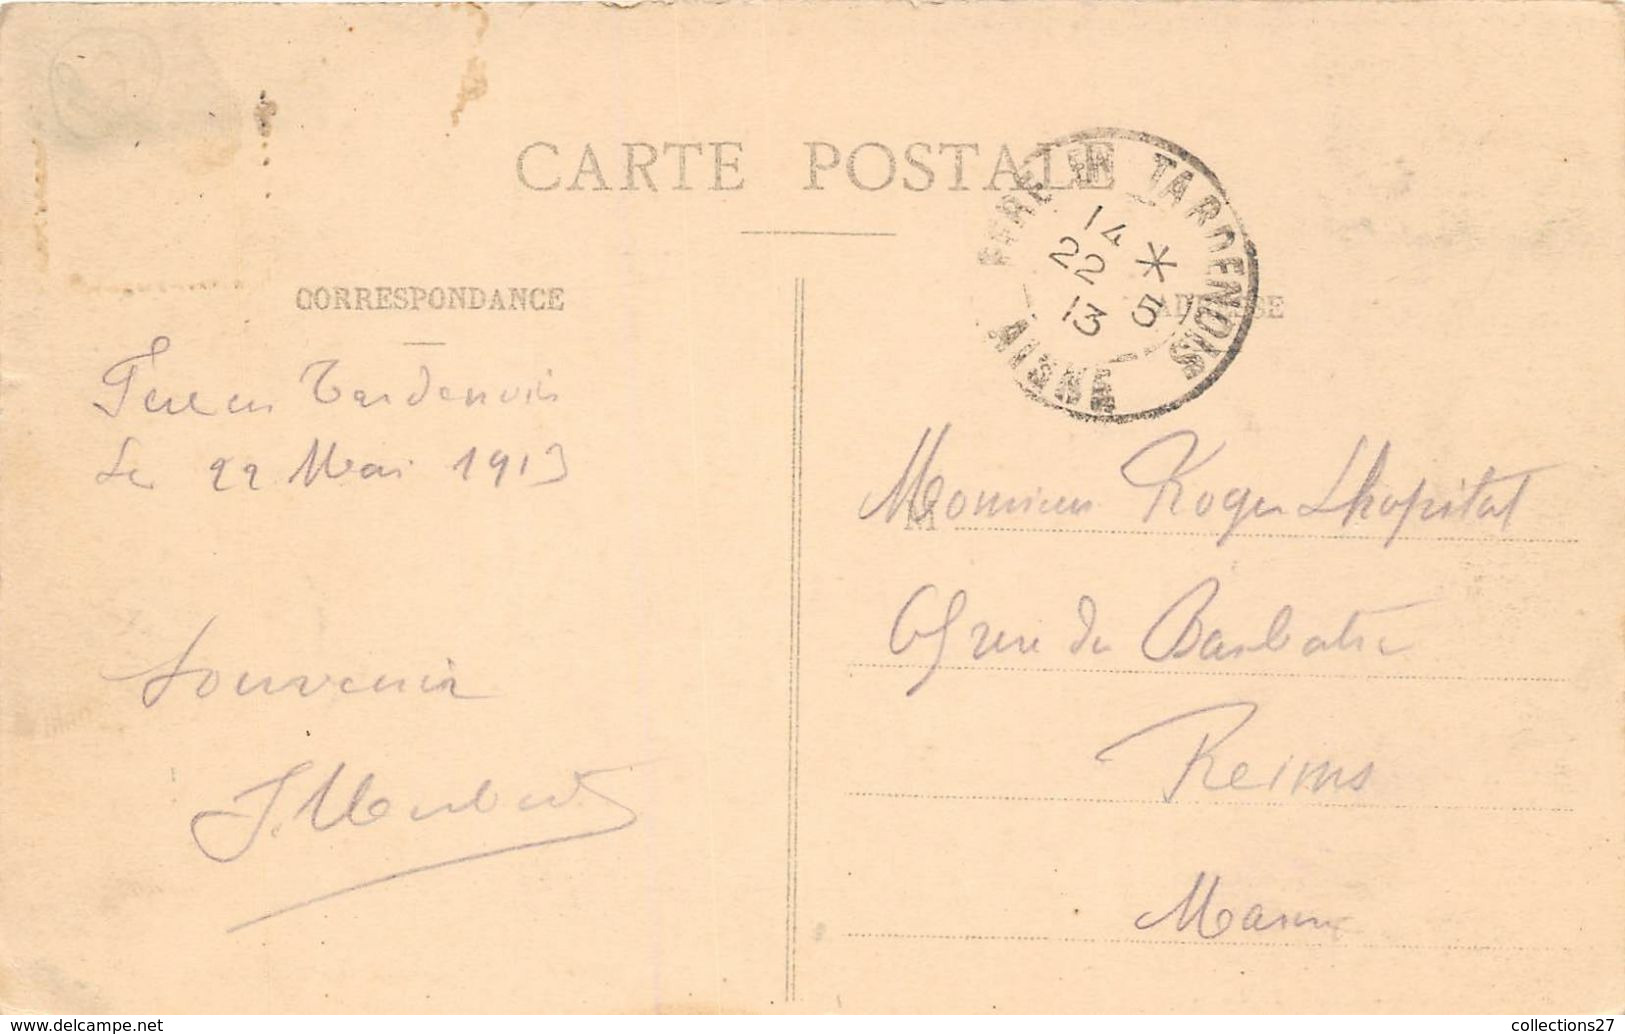 CARTE POSTALE
FERE EN TARDENOIS
14 *
22 5
13
AISNE
CORRESPONDANCE
ADRESSE
Fere en Tardenois
Le 22 Mai 1913
Souvenir
J.
M
Monsieur Roger Lhopital
rue du Barbatre
Reims
Marne
collections27